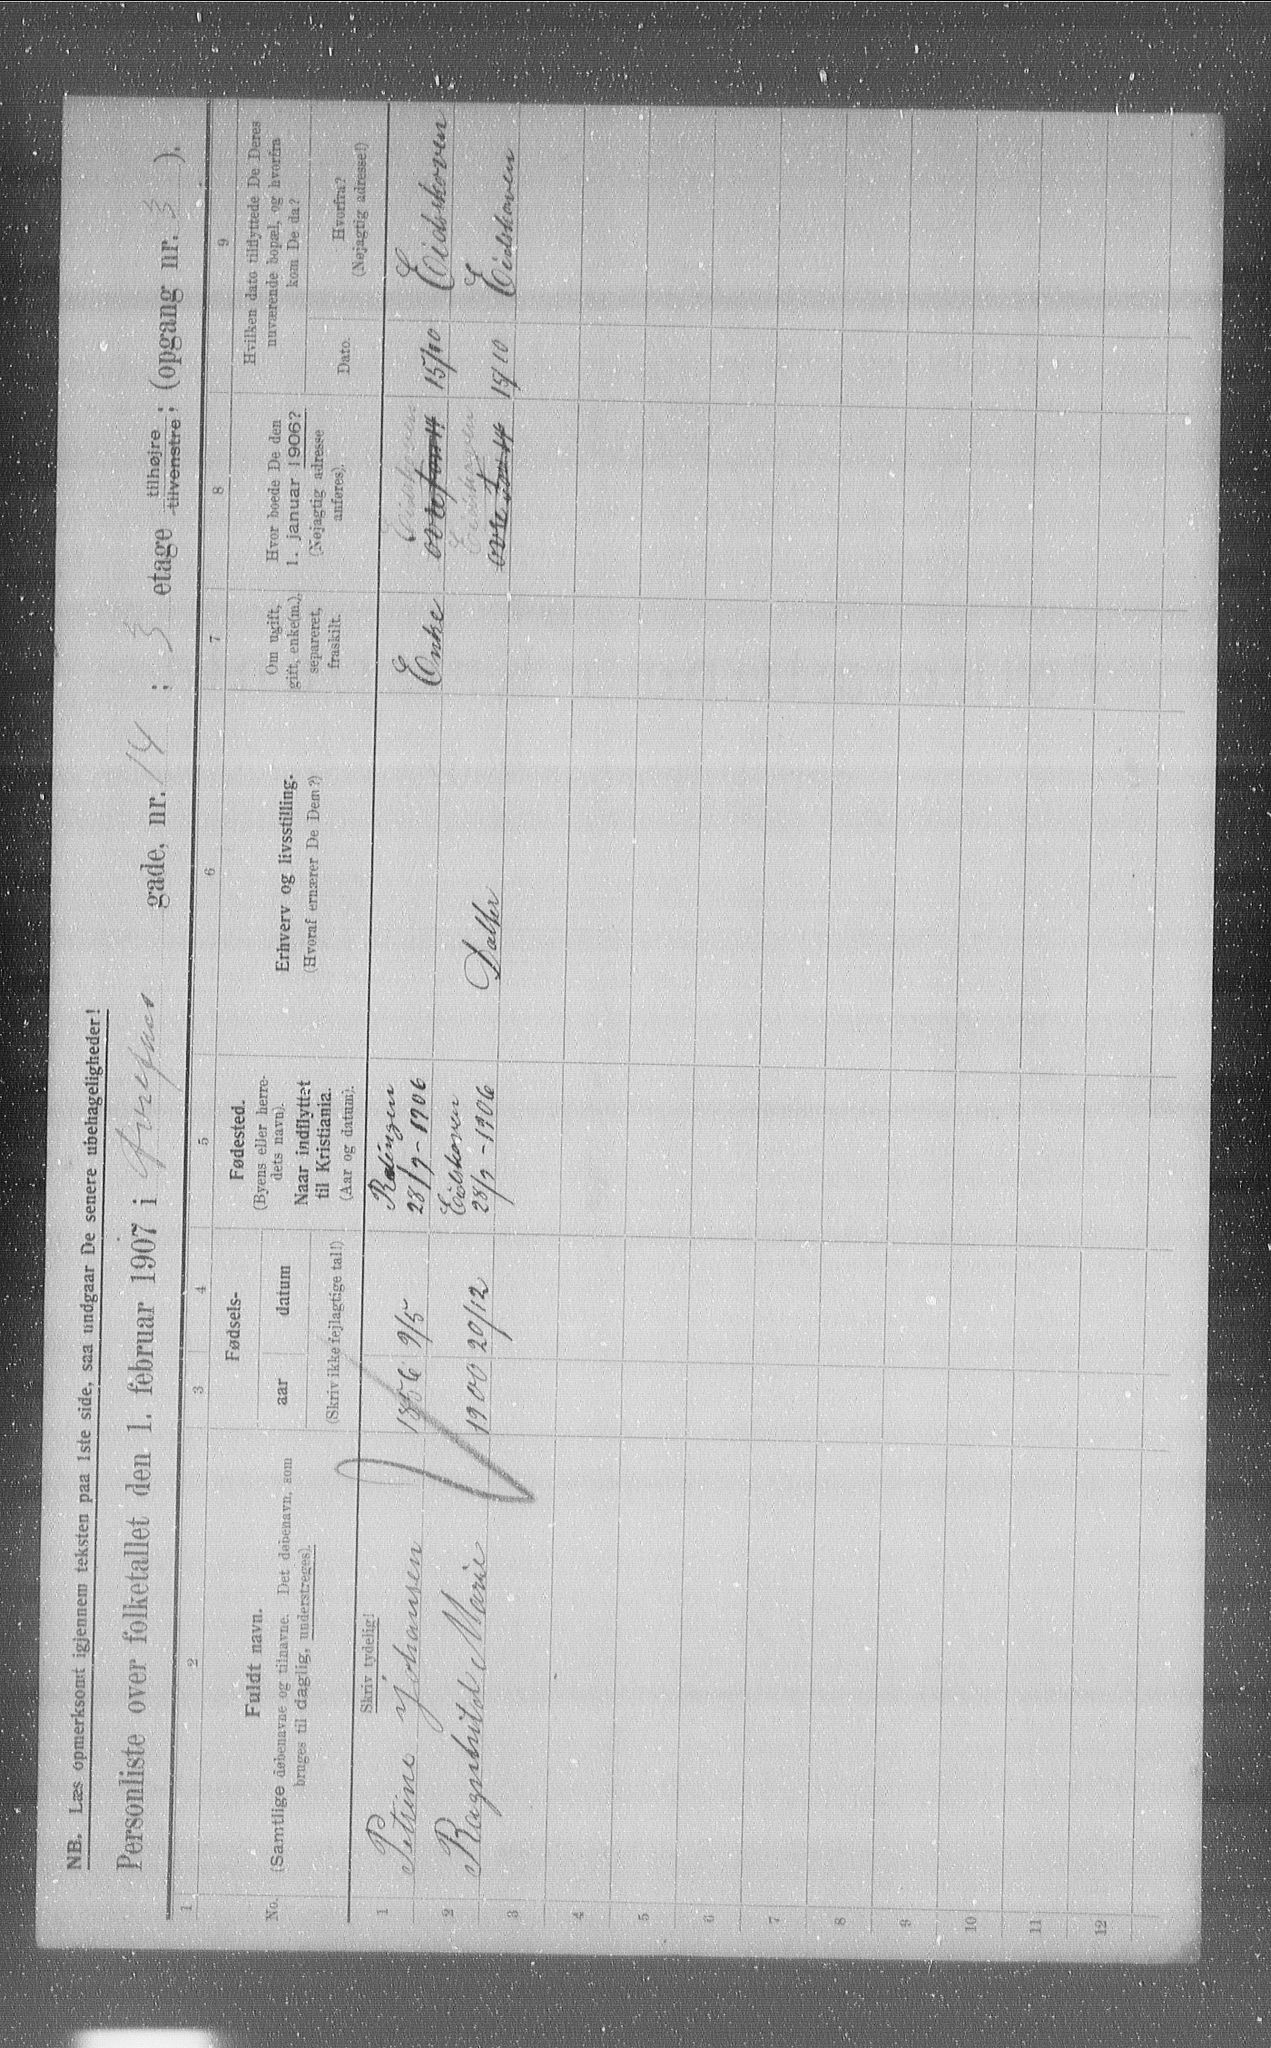 NB. Læs opmerksomt igjennem teksten paa 1ste side, saa undgaar De senere ubehageligheder!
Personliste over folketallet den 1. februar 1907 i gade, nr. 14 ; 3 etage tilhøjre tilvenstre ; (opgang nr. 3 ).
1 2 3 4 5 6 7 8 9
No.
Fuldt navn.
(Samtlige døbenavne og tilnavne. Det døbenavn, som
bruges til daglig, understreges).
Skriv tydelig!
Fødsels-
aar datum
(Skriv ikke fejlagtige tal!)
Fødested.
(Byens eller herre-
dets navn).
Naar indflyttet
til Kristiania.
(Aar og datum).
Erhverv og livsstilling.
(Hvoraf ernærer De Dem?)
Om ugift,
gift, enke(m.),
separeret,
fraskilt.
Hvor boede De den
1. januar 1906?
(Nøjagtig adresse
anføres).
Hvilken dato tilflyttede De Deres
nuværende bopæl, og hvorfra
kom De da?
Dato.
Hvorfra?
(Nøjagtig adresse!)
1 Petrine Johansen 1856 9/5 28/9-1906 Enke Eidskoven 15/10 Eidskoven
2 Ragnhild Marie 1900 20/12 Eidskoven 28/9-1906 Datter Eidskoven 15/10 Eidskoven
3
4
5
6
7
8
9
10
11
12